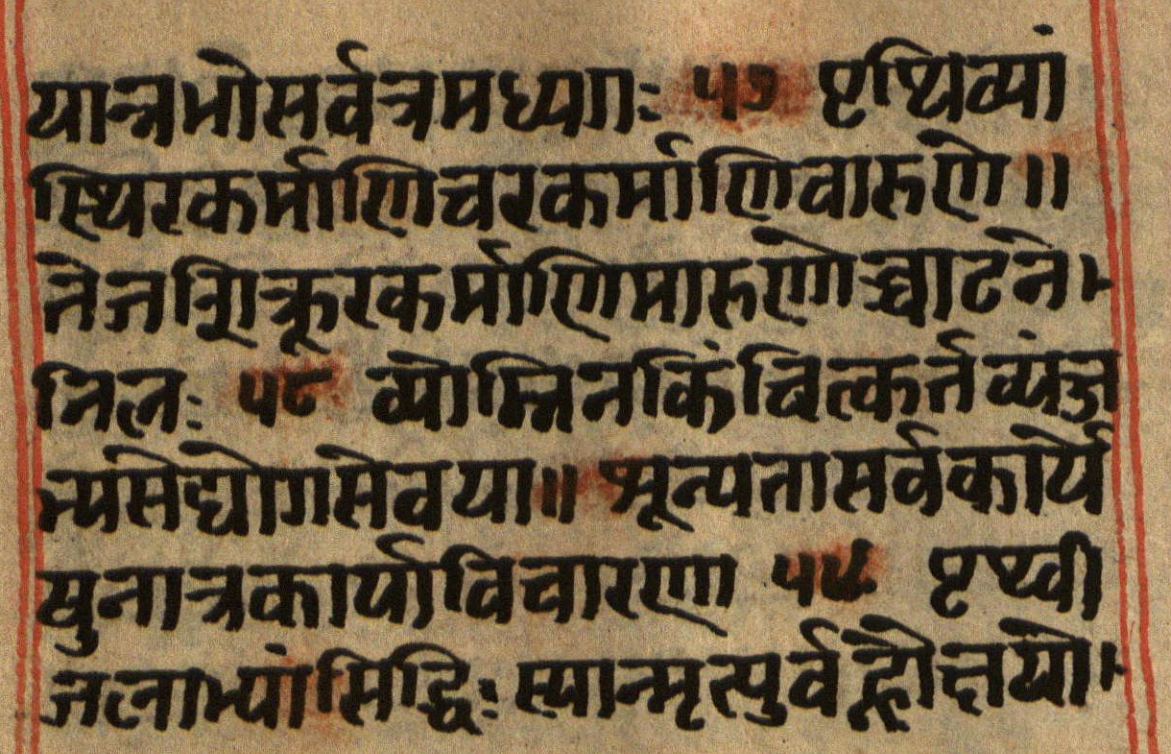 यान्नभोसर्वत्रमध्यगः ५७ पृथिव्यां
स्थिरकर्माणिचरकर्माणिवारुणे॥
तेजसिक्रूरकर्माणिमारुणोच्चाटने
निलः ५८ व्योम्निनकिंचित्कर्तव्यंम
भ्यसेद्योगसेवया॥ शून्यतासर्वकार्ये
षुनात्रकार्याविचारणा ५९ पृथ्वी
जलाभ्यांसिद्धिः स्यान्मृत्युर्वह्नोक्षयो